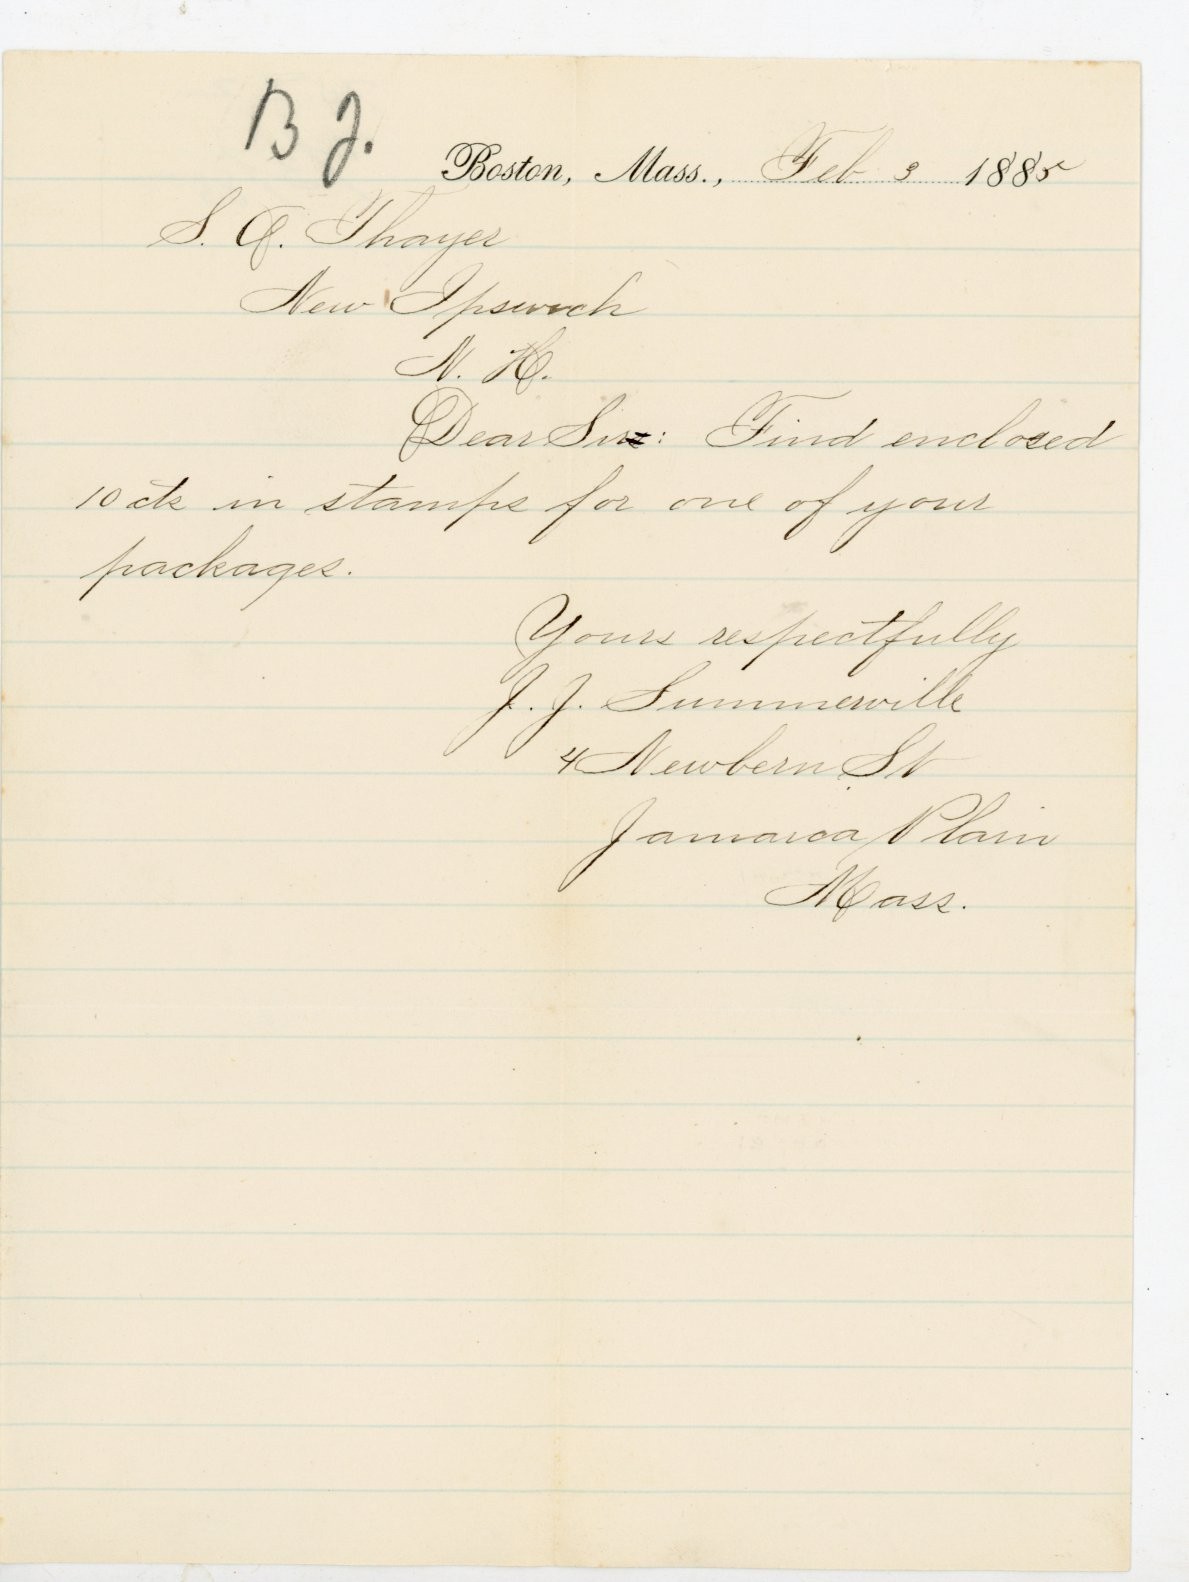 B J.
Boston, Mass., Feb 3 1885
S. A. Thayer
New Ipswich
N. H.
Dear Sir: Find enclosed
10 cts in stamps for one of your
packages.
Yours respectfully
J. J. Summerville
4 Newbern St
Jamaica Plain
Mass.